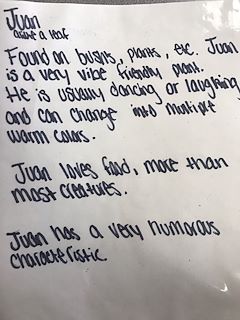 Juan
aside a leaf
Found on bushs, plants, etc. Juan
is a very vibe friendly plant.
He is usually dancing or laughing
and can change into multiple
warm colors.
Juan loves food, more than
most creatures.
Juan has a very humorous
characteristic